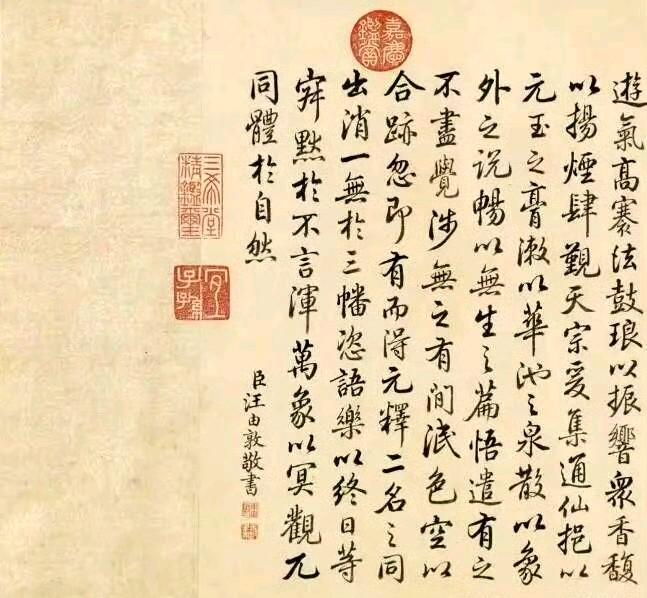 嘉慶鑑賞
遊氣高褰法鼓琅以振響衆香馥
以揚煙肆覲天宗爰集通仙挹以
元玉之膏漱以華池之泉散以象
外之說暢以無生之篇悟遣有之
不盡覺涉無之有間泯色空以
合跡忽即有而得元釋二名之同
出消一無於三幡恣語樂以終日等
寂默於不言渾萬象以冥觀兀
同體於自然
臣汪由敦敬書
三希堂精鑑璽
宜子孫